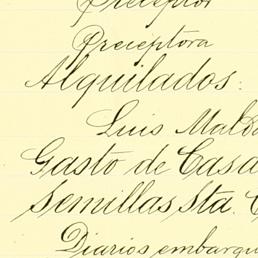 Preceptor
Preceptora
Alquilados:
Luis Mald
Gasto de Casa
Semillas Sta.
Diarios embarqu